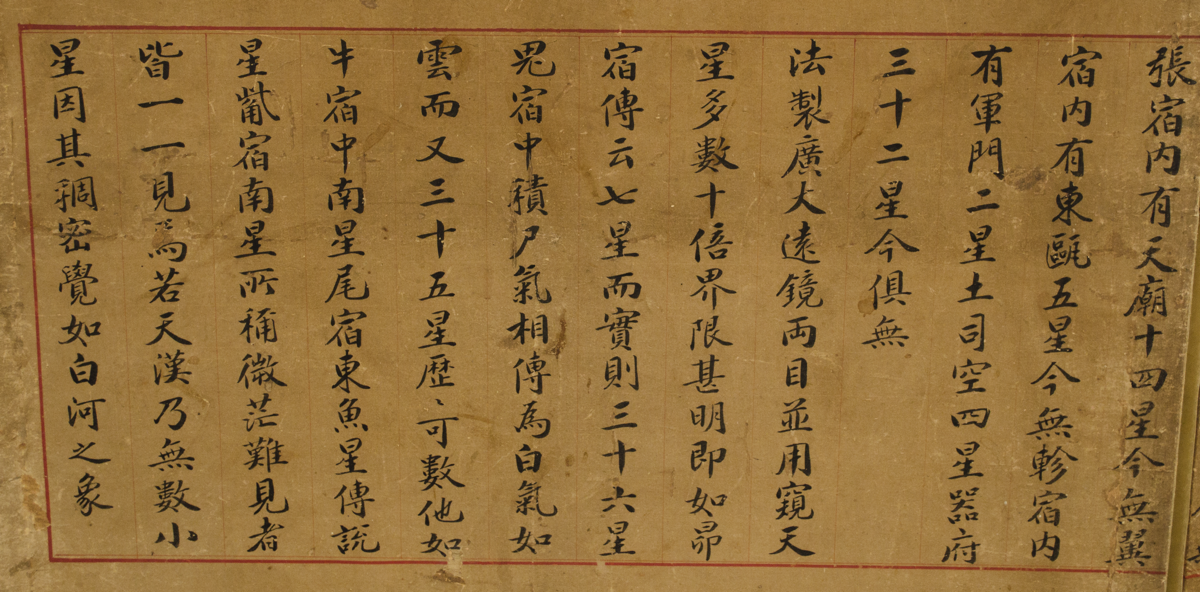 張宿内有天廟十四星今無翼
宿内有東甌五星今無軫宿内
有軍門二星土司空四星器府
三十二星今俱無
法製廣大遠鏡両目並用窺天
星多數十倍界限甚明即如昴
宿傳云七星而實則三十六星
鬼宿中積尸氣相傳為白氣如
雲而又三十五星歷〻可數他如
牛宿中南星尾宿東魚星傳説
星觜宿南星所稱微茫難見者
皆一一見焉若天漢乃無數小
星因其稠密覺如白河之象